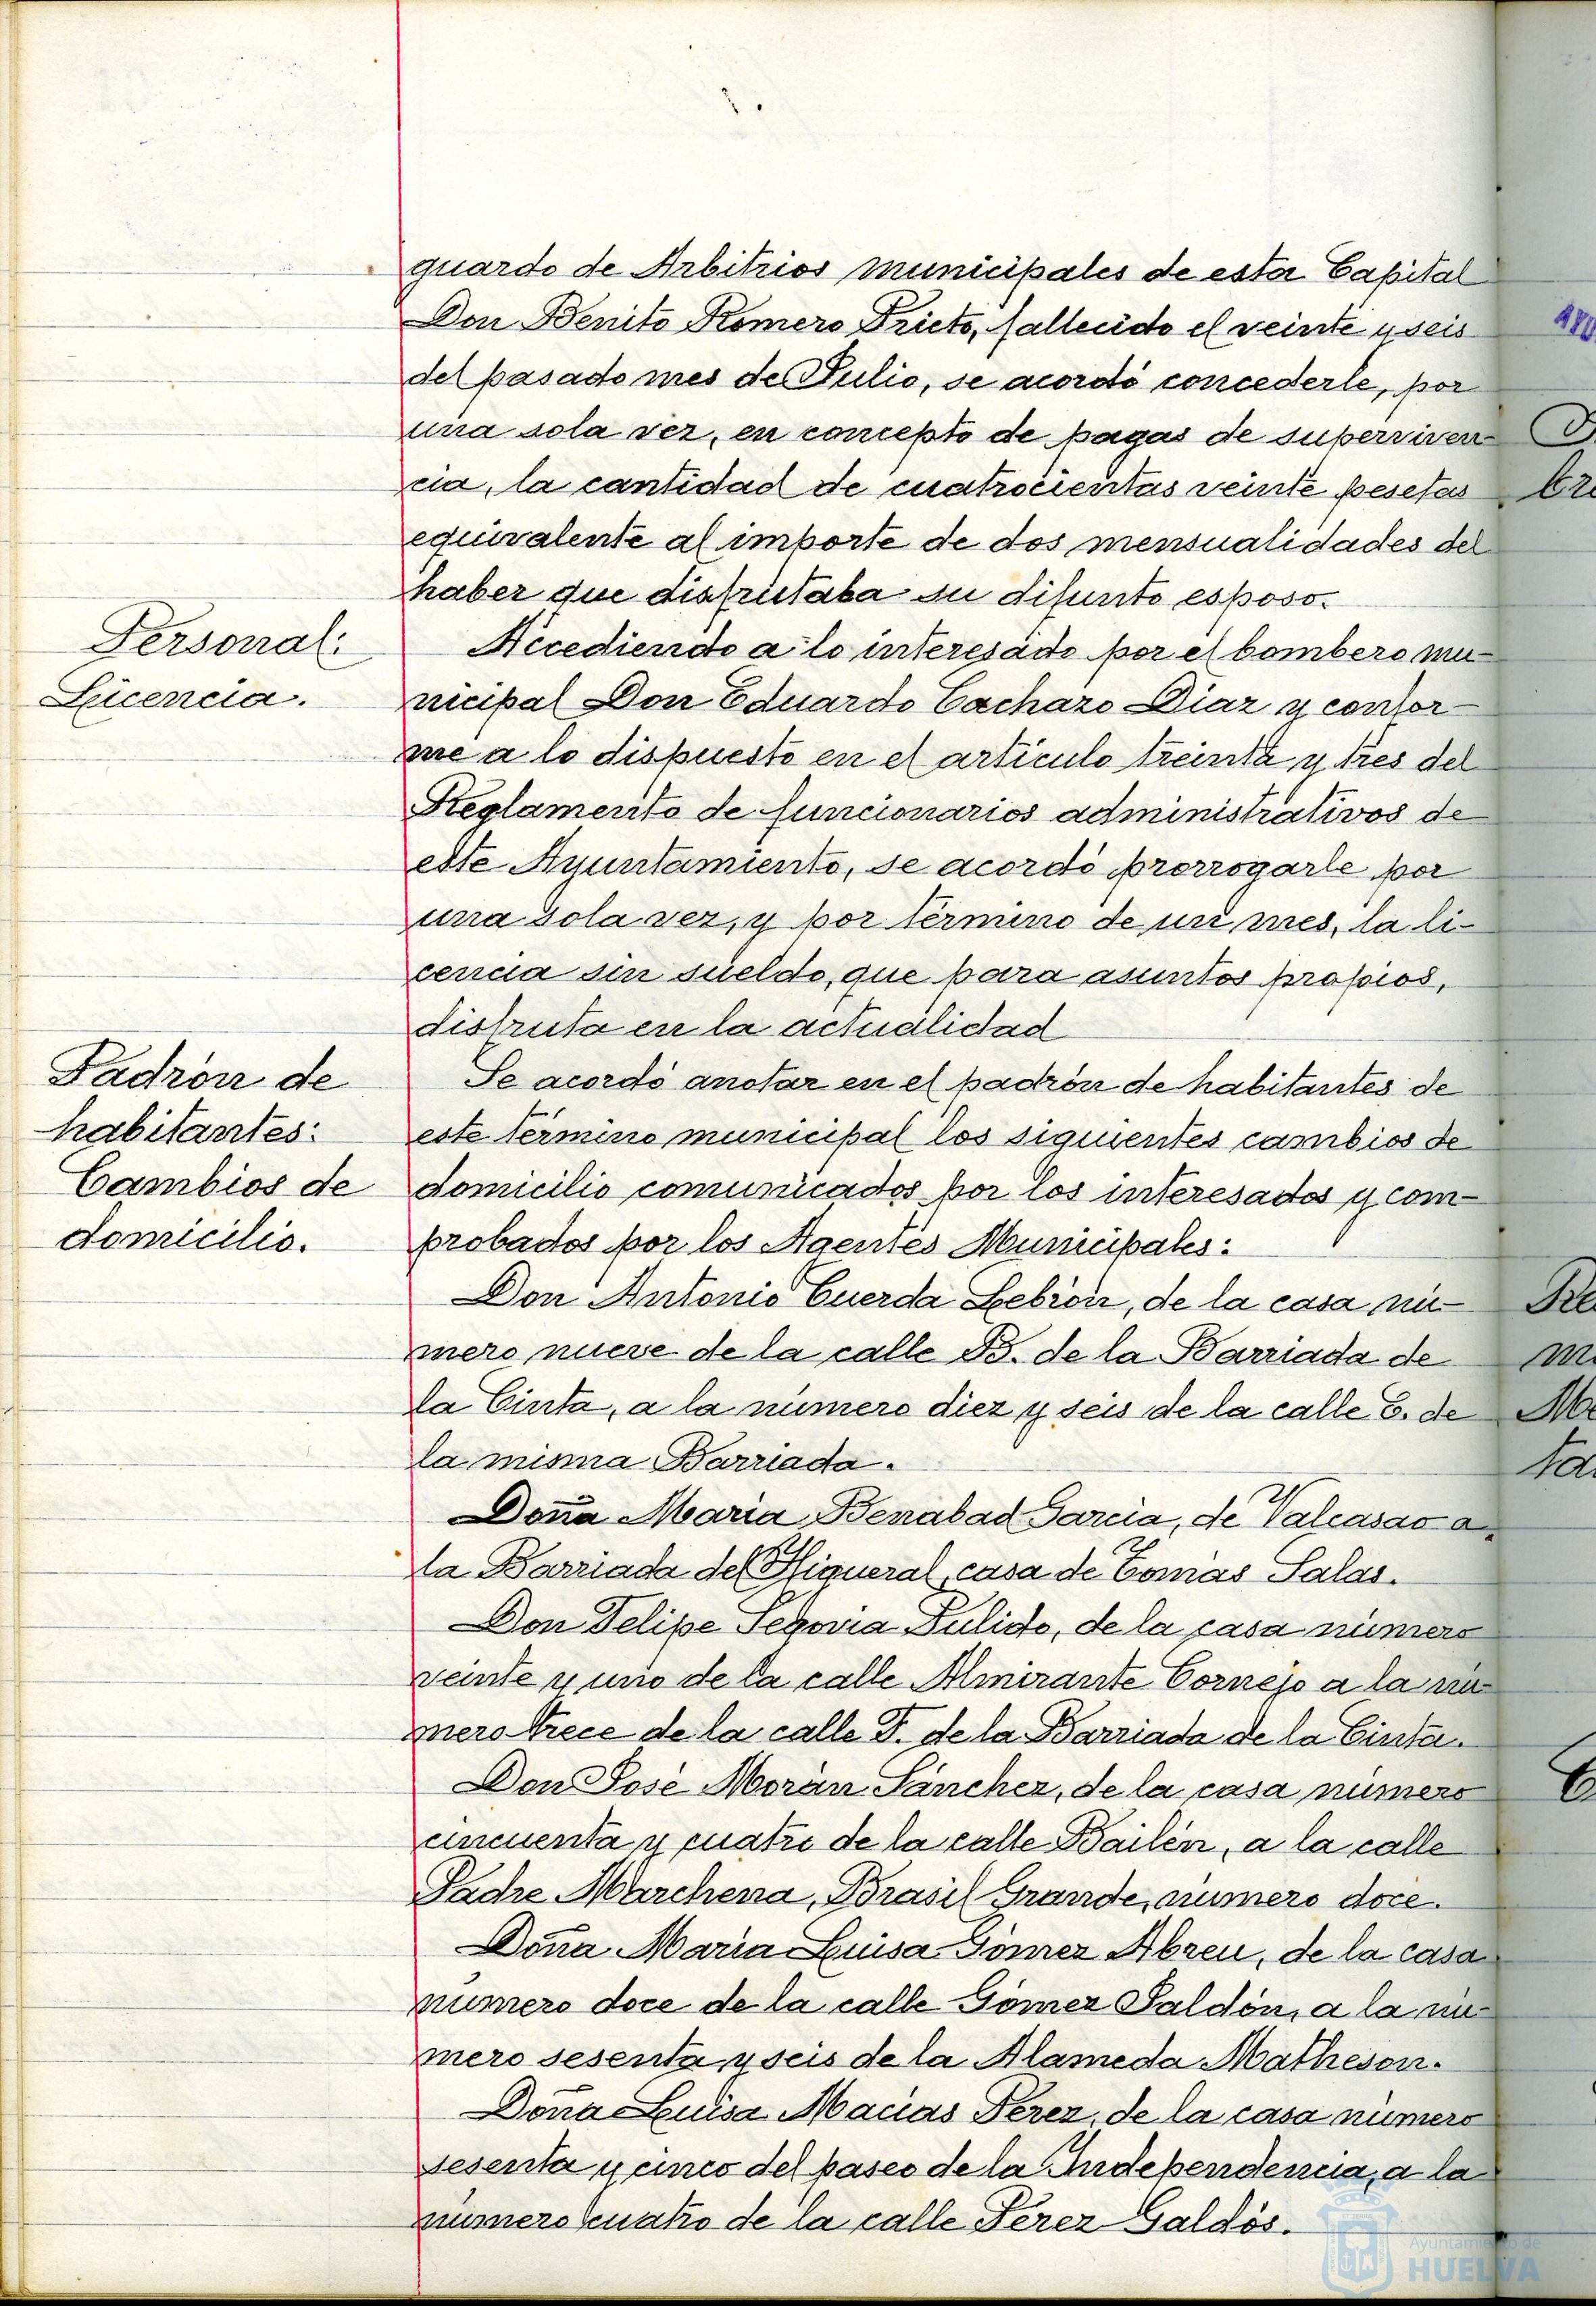 guardo de Arbitrios municipales de esta Capital
Don Benito Romero Prieto, fallecido el veinte y seis
del pasado mes de Julio, se acordó concederle, por
una sola vez, en concepto de pagas de superviven-
cia, la cantidad de cuatrocientas veinte pesetas
equivalente al importe de dos mensualidades del
haber que disfrutaba su difunto esposo.
Personal:
Licencia.
Accediendo a lo interesado por el bombero mu-
nicipal Don Eduardo Cacharo Diaz y confor-
me a lo dispuesto en el artículo treinta y tres del
Reglamento de funcionarios administrativos de
este Ayuntamiento, se acordó prorrogarle por
una sola vez, y por término de un mes, la li-
cencia sin sueldo, que para asuntos propios,
disfruta en la actualidad
Padrón de
habitantes:
Cambios de
domicilio.
Se acordó anotar en el padrón de habitantes de
este término municipal los siguientes cambios de
domicilio comunicados por los interesados y com-
probados por los Agentes Municipales:
Don Antonio Cuerda Lebrón, de la casa nú-
mero nueve de la calle B. de la Barriada de
la Cinta, a la número diez y seis de la calle C. de
la misma Barriada.
Doña Maria Benabad Garcia, de Valcasao a
la Barriada del Higueral, casa de Tomás Salas.
Don Felipe Segovia Pulido, de la casa número
veinte y uno de la calle Almirante Cornejo a la nú-
mero trece de la calle F. de la Barriada de la Cinta.
Don José Morán Sánchez, de la casa número
cincuenta y cuatro de la calle Bailén, a la calle
Padre Marchena, Brasil Grande, número doce.
Doña Maria Luisa Gómez Abreu, de la casa
número doce de la calle Gómez Jaldón, a la nú-
mero sesenta y seis de la Alameda Matheson.
Doña Luisa Macias Pérez, de la casa número
sesenta y cinco del paseo de la Independencia, a la
número cuatro de la calle Pérez Galdós.
Ayuntamiento de
HUELVA